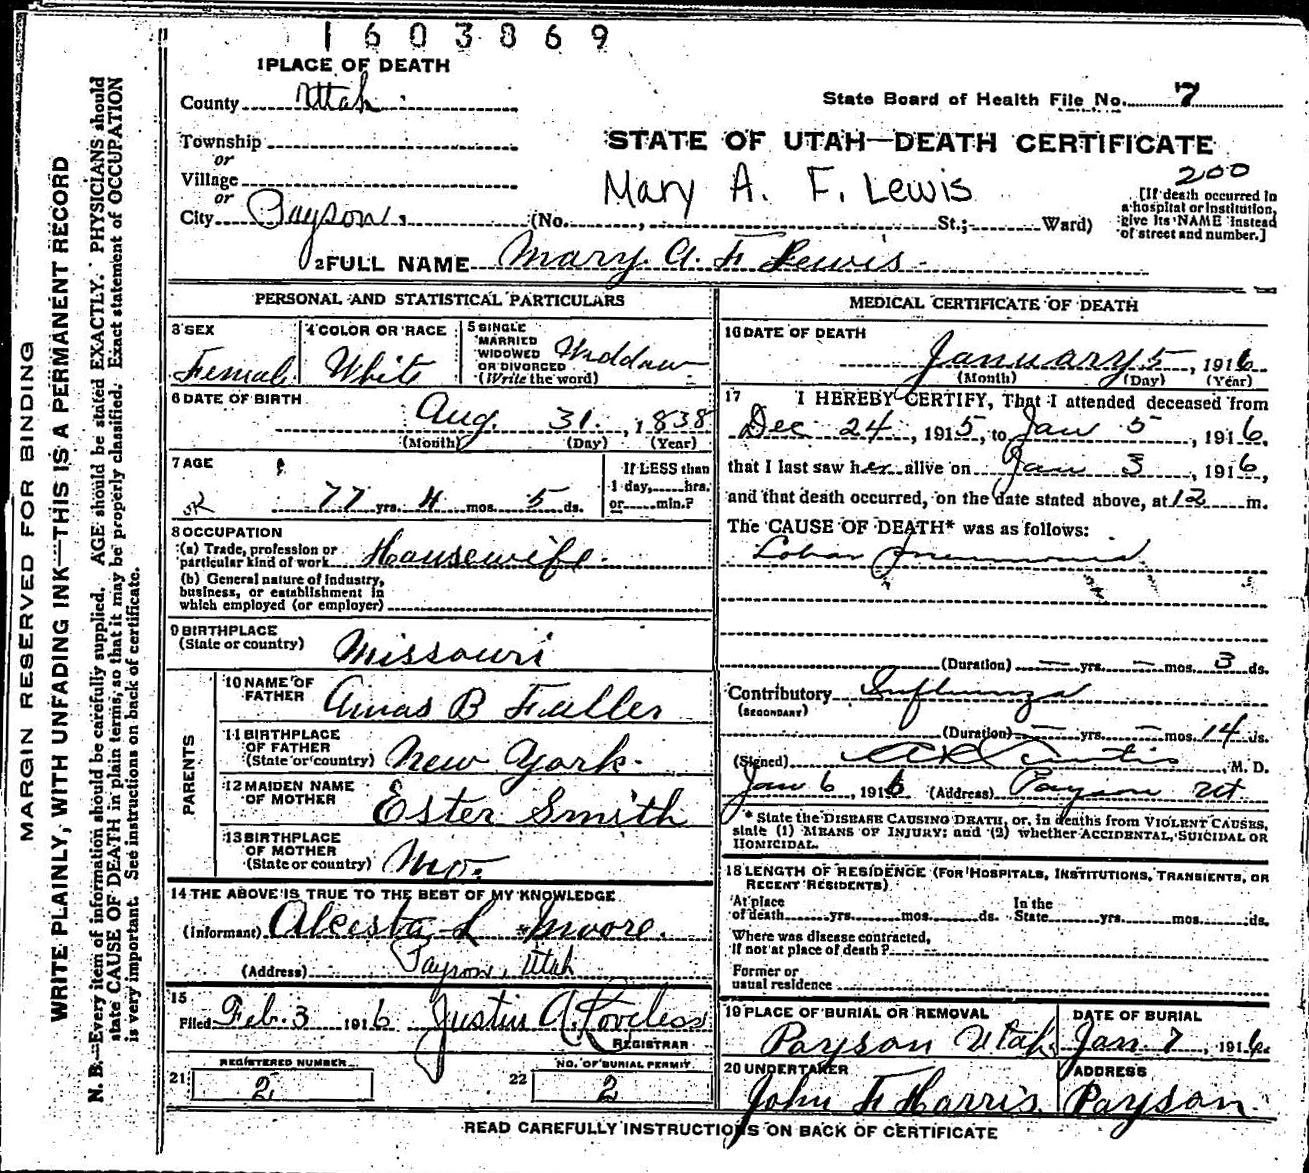 1603869
1 PLACE OF DEATH
County Utah
State Board of Health File No. 7
Township
or
Village
or
City Payson, (No. , St.; Ward)
STATE OF UTAH—DEATH CERTIFICATE
200
Mary A. F. Lewis
[If death occurred in
a hospital or institution,
give its NAME instead
of street and number.]
2 FULL NAME Mary A. F Lewis
PERSONAL AND STATISTICAL PARTICULARS
3 SEX
Female
4 COLOR OR RACE
White
5 SINGLE
MARRIED
WIDOWED
OR DIVORCED
(Write the word)
Widdow
6 DATE OF BIRTH
Aug. 31, 1838
(Month) (Day) (Year)
7 AGE
77 yrs. 4 mos. 5 ds.
If LESS than
1 day, hrs.
or min.?
8 OCCUPATION
(a) Trade, profession or
particular kind of work Housewife
(b) General nature of industry,
business, or establishment in
which employed (or employer)
9 BIRTHPLACE
(State or country) Missouri
PARENTS
10 NAME OF
FATHER Amas B Fuller
11 BIRTHPLACE
OF FATHER
(State or country) New York
12 MAIDEN NAME
OF MOTHER Ester Smith
13 BIRTHPLACE
OF MOTHER
(State or country) Mo.
14 THE ABOVE IS TRUE TO THE BEST OF MY KNOWLEDGE
(Informant) Alcesta L Moore.
(Address) Payson, Utah
15
Filed Feb. 3 1916 Justin A. Loveless
REGISTRAR
REGISTERED NUMBER
21 2
NO. OF BURIAL PERMIT
22 2
MEDICAL CERTIFICATE OF DEATH
16 DATE OF DEATH
January 5, 1916
(Month) (Day) (Year)
17 I HEREBY CERTIFY, That I attended deceased from
Dec 24, 1915, to Jan 5, 1916,
that I last saw her alive on Jan 3, 1916,
and that death occurred, on the date stated above, at 12 m.
The CAUSE OF DEATH* was as follows:
Lobar pneumonia
(Duration) — yrs. — mos. 3 ds.
Contributory Influenza
(SECONDARY)
(Duration) — yrs. — mos. 14 ds.
(Signed) Curtis, M. D.
Jan 6, 1916 (Address) Payson Ut
* State the DISEASE CAUSING DEATH, or, in deaths from VIOLENT CAUSES,
state (1) MEANS OF INJURY; and (2) whether ACCIDENTAL, SUICIDAL OR
HOMICIDAL.
18 LENGTH OF RESIDENCE (FOR HOSPITALS, INSTITUTIONS, TRANSIENTS, OR
RECENT RESIDENTS)
At place
of death yrs. mos. ds.
In the
State yrs. mos. ds.
Where was disease contracted,
If not at place of death?
Former or
usual residence
19 PLACE OF BURIAL OR REMOVAL
Payson Utah
DATE OF BURIAL
Jan. 7, 1916.
20 UNDERTAKER
John F Harris
ADDRESS
Payson.
READ CAREFULLY INSTRUCTIONS ON BACK OF CERTIFICATE
MARGIN RESERVED FOR BINDING
WRITE PLAINLY, WITH UNFADING INK—THIS IS A PERMANENT RECORD
N. B.—Every item of information should be carefully supplied. AGE should be stated EXACTLY. PHYSICIANS should
state CAUSE OF DEATH in plain terms, so that it may be properly classified. Exact statement of OCCUPATION
is very important. See instructions on back of certificate.